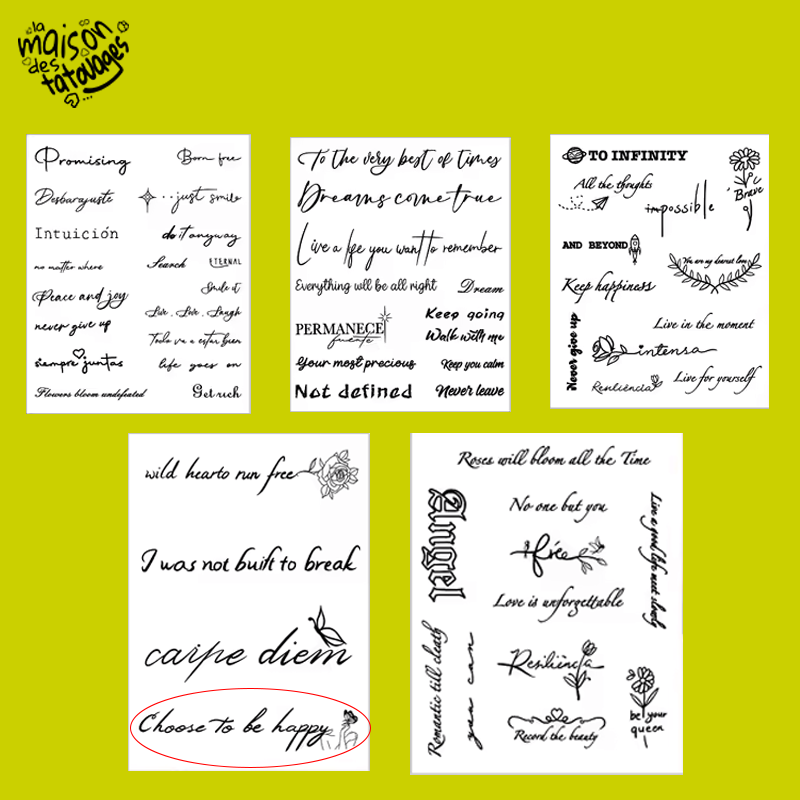 la
maison
des
tatouages
Promising
Born free
Desbarajuste
just smile
Intuición
do it anyway
no matter where
Search
ETERNAL
Smile it
Peace and joy
Live, Love, Laugh
never give up
Todo va a estar bien
siempre juntas
life goes on
Flowers bloom undefeated
Get rich
To the very best of times
Dreams come true
Live a life you want to remember
Everything will be all right
Dream
PERMANECE
fuerte
Keep going
Walk with me
Your most precious
Keep you calm
Not defined
Never leave
TO INFINITY
All the thoughts
impossible
Brave
AND BEYOND
You are my dearest love
Keep happiness
Never give up
Live in the moment
intensa
Resiliência
Live for yourself
wild hearto run free
I was not built to break
carpe diem
Choose to be happy
Roses will bloom all the Time
Angel
No one but you
free
Love is unforgettable
Live a good life meet slowly
Romantic till death
you can
Resiliência
Record the beauty
be your
queen